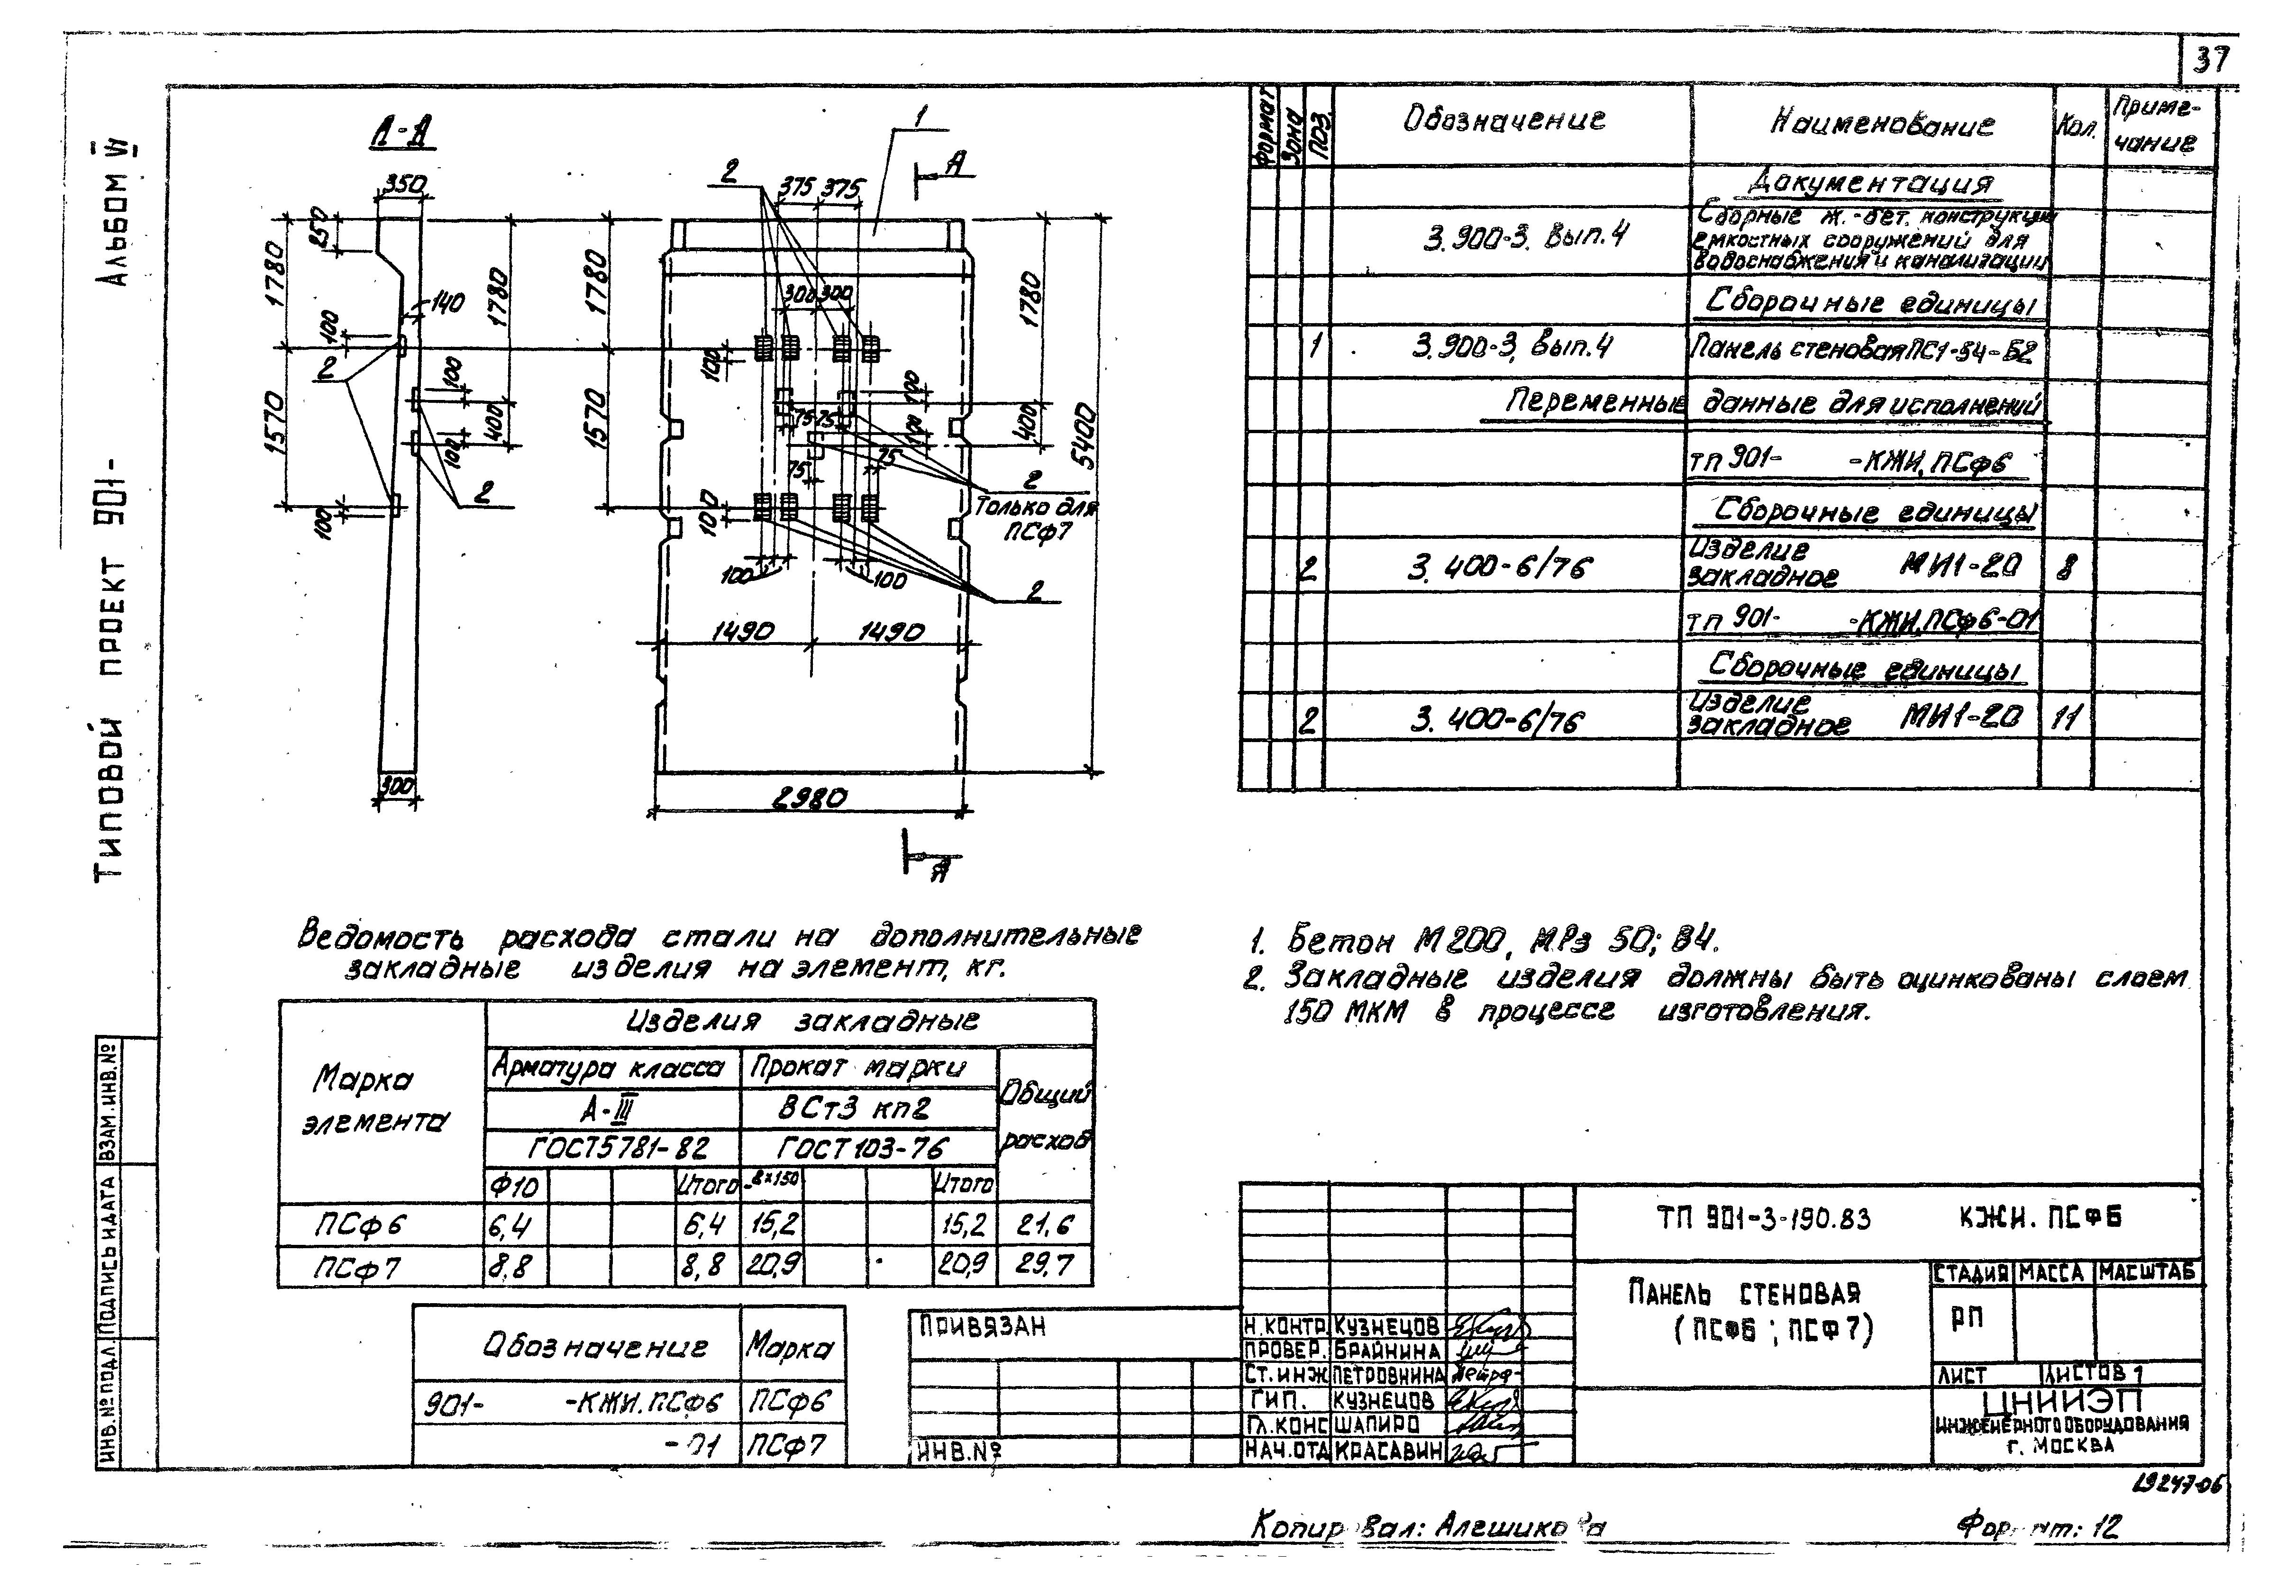 37
Альбом VI
Типовой проект 901-
А-А
350
250
1780
1780
140
100
100
2
1570
400
100
2
100
300
1
А
2
375 375
1780
300 300
1780
100
100
1570
75 75
400
5400
100
75
75
2
Только для
ПСф7
100
100
100
2
1490 1490
2980
А
Формат Зона Поз. Обозначение Наименование Кол. Приме-
чание
Документация
3.900-3. Вып.4 Сборные ж.-бет. конструкции
емкостных сооружений для
водоснабжения и канализации
Сборочные единицы
1 3.900-3. Вып.4 Панель стеновая ПС1-54-Б2
Переменные данные для исполнений
ТП 901- -КЖИ.ПСф6
Сборочные единицы
2 3.400-6/76 Изделие
закладное МИ1-20 8
ТП 901- -КЖИ.ПСф6-01
Сборочные единицы
2 3.400-6/76 Изделие
закладное МИ1-20 11
Ведомость расхода стали на дополнительные
закладные изделия на элемент, кг.
Марка
элемента
Изделия закладные
Арматура класса Прокат марки Общий
расход
А-III ВСт3 кп2
ГОСТ 5781-82 ГОСТ 103-76
Ф10 Итого -8×150 Итого
ПСф6 6,4 6,4 15,2 15,2 21,6
ПСф7 8,8 8,8 20,9 20,9 29,7
1. Бетон М200, МРз 50; В4.
2. Закладные изделия должны быть оцинкованы слоем
150 МКМ в процессе изготовления.
Обозначение Марка
901- -КЖИ.ПСф6 ПСф6
-01 ПСф7
Привязан
Инв.№
ТП 901-3-190.83 КЖИ. ПСФ6
Панель стеновая
(ПСФ6; ПСФ7)
Стадия Масса Масштаб
РП
Лист Листов 1
ЦНИИЭП
инженерного оборудования
г. Москва
Н.контр. Кузнецов
Провер. Брайнина
Ст.инж Петровнина
ГИП. Кузнецов
Гл.конс Шапиро
Нач.отд Красавин
Взам.инв.№
Подпись и дата
Инв.№ подл.
19247-06
Копировал: Алешикова
Формат: 12